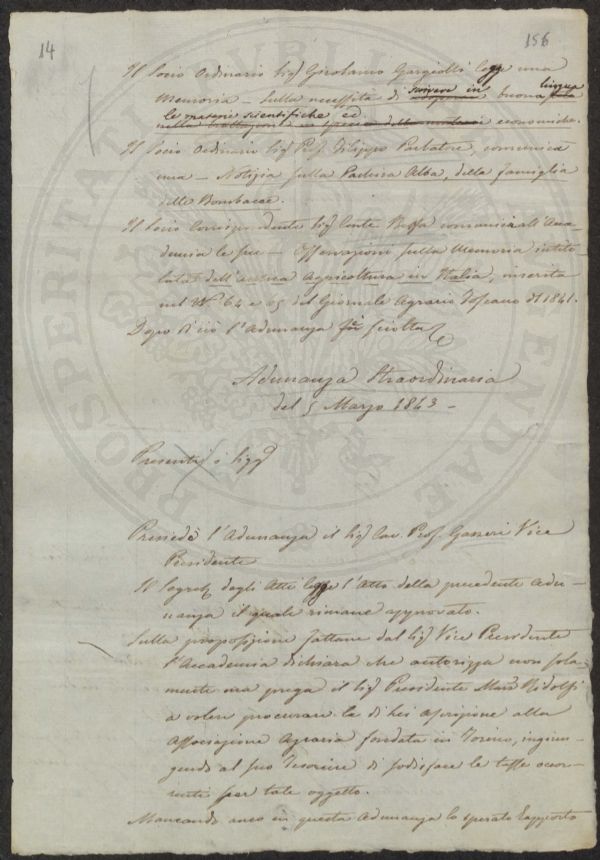 14
156
Il Socio Ordinario Sig. Girolamo Gargiolli legge una
Memoria – Sulla necessità di scrivere in buona lingua
le materie scientifiche ed economiche.
Il Socio Ordinario Sig. Prof. Filippo Parlatore, comunica
una – Notizia sulla Paduca Alba, della famiglia
delle Bombacee.
Il Socio Corrispondente Sig. Conte comunica all'Acca-
demia le sue – Osservazioni sulla Memoria intito-
lata dell'antica Agricoltura in Italia, inserita
nel N.º 64 e 65 del Giornale Agrario Toscano del 1841.
Dopo di ciò l'Adunanza fu sciolta
Adunanza Straordinaria
del 5 Marzo 1843 –
Presenti i Sigg.
Presiede l'Adunanza il Sig. Cav. Prof. Gazzeri Vice
Presidente
Il Segret. degli Atti legge l'Atto della precedente Adu-
nanza il quale rimane approvato.
Sulla proposizione fattane dal Sig. Vice Presidente
l'Accademia dichiara che autorizza non sola-
mente ma prega il Sig. Presidente March. Ridolfi
a volere procurare la di lei ascrizione alla
Associazione Agraria fondata in Torino, ingiun-
gendo al suo Tesoriere di sodisfare le tasse occor-
renti per tale oggetto.
Mancando anco in questa Adunanza lo sperato Rapporto